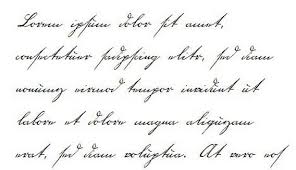 Lorem ipsum dolor sit amet,
consetetur sadipscing elitr, sed diam
nonumy eirmod tempor invidunt ut
labore et dolore magna aliquyam
erat, sed diam voluptua. At vero eos